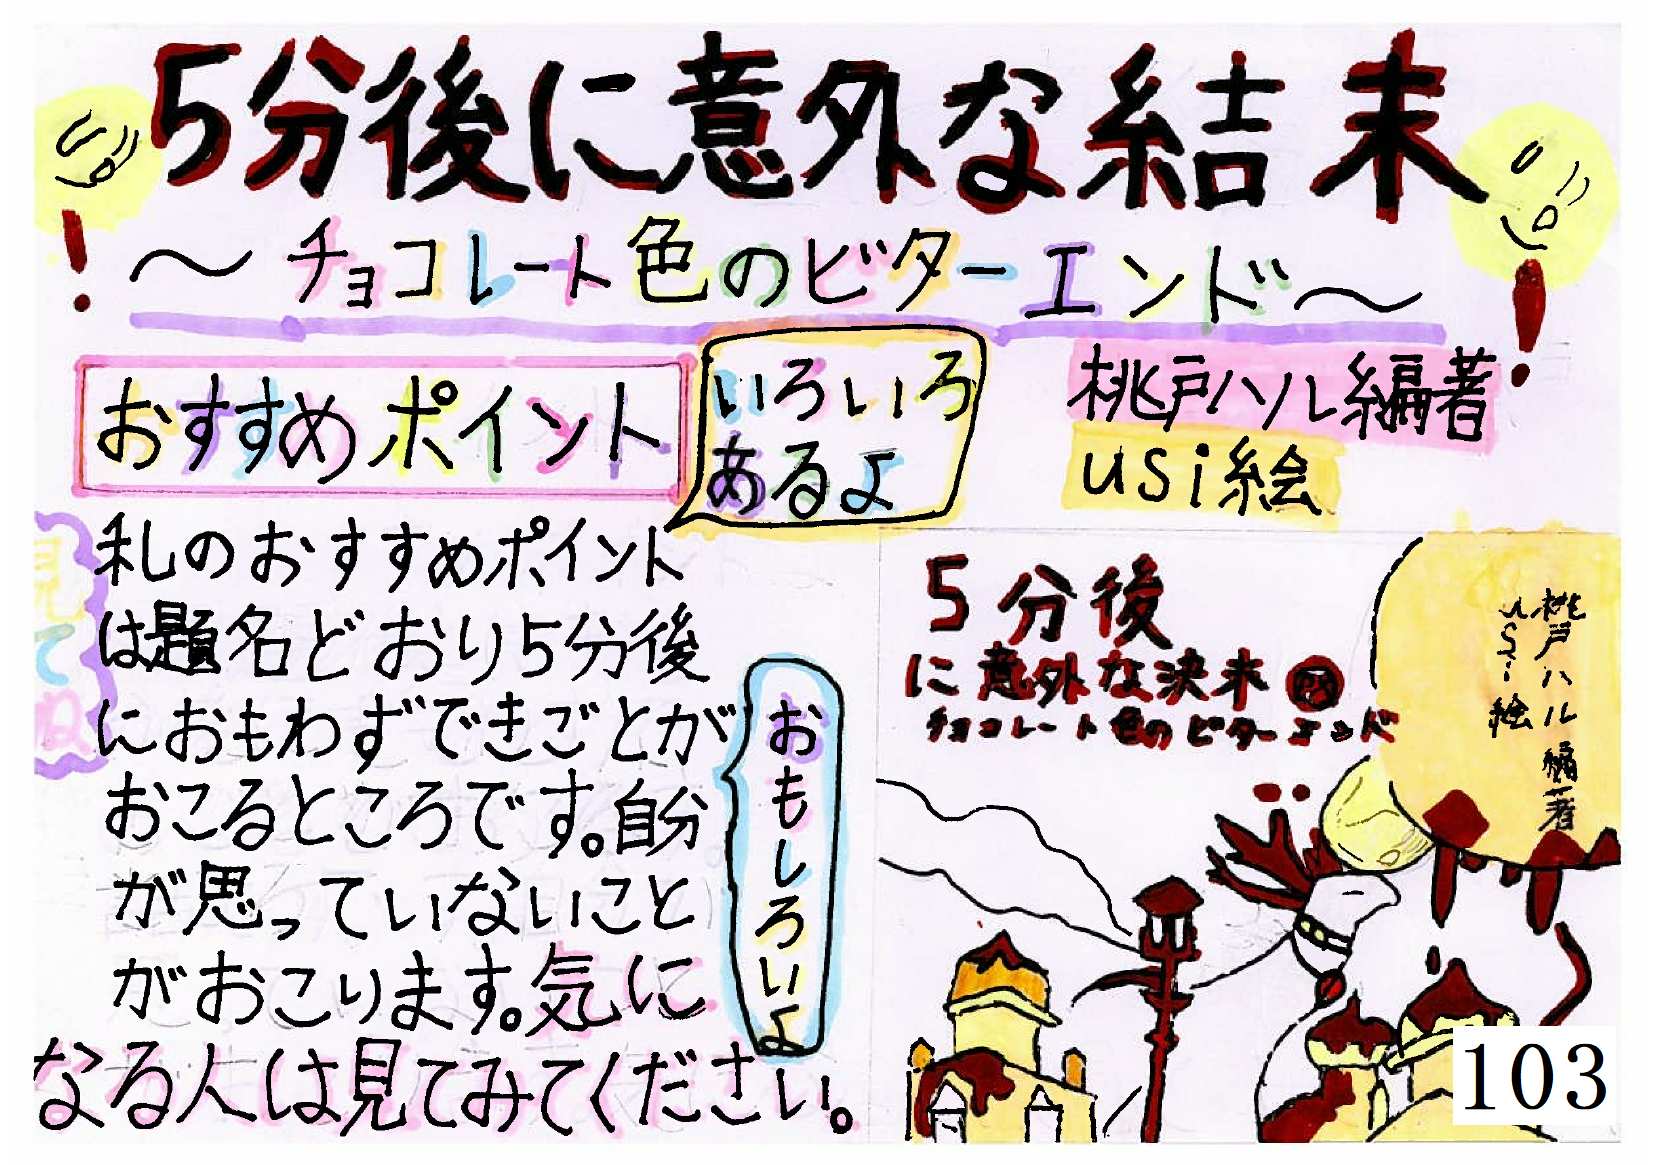 5分後に意外な結末
～チョコレート色のビターエンド～
おすすめポイント
いろいろ
あるよ
桃戸ハル編著
usi絵
見
て
ね
私のおすすめポイント
は題名どおり5分後
におもわずできごとが
おこるところです。自分
が思っていないこと
がおこります。気に
なる人は見てみてください。
おもしろいよ
5分後
に意外な決末
チョコレート色のビターエンド
桃戸ハル編著
usi絵
103